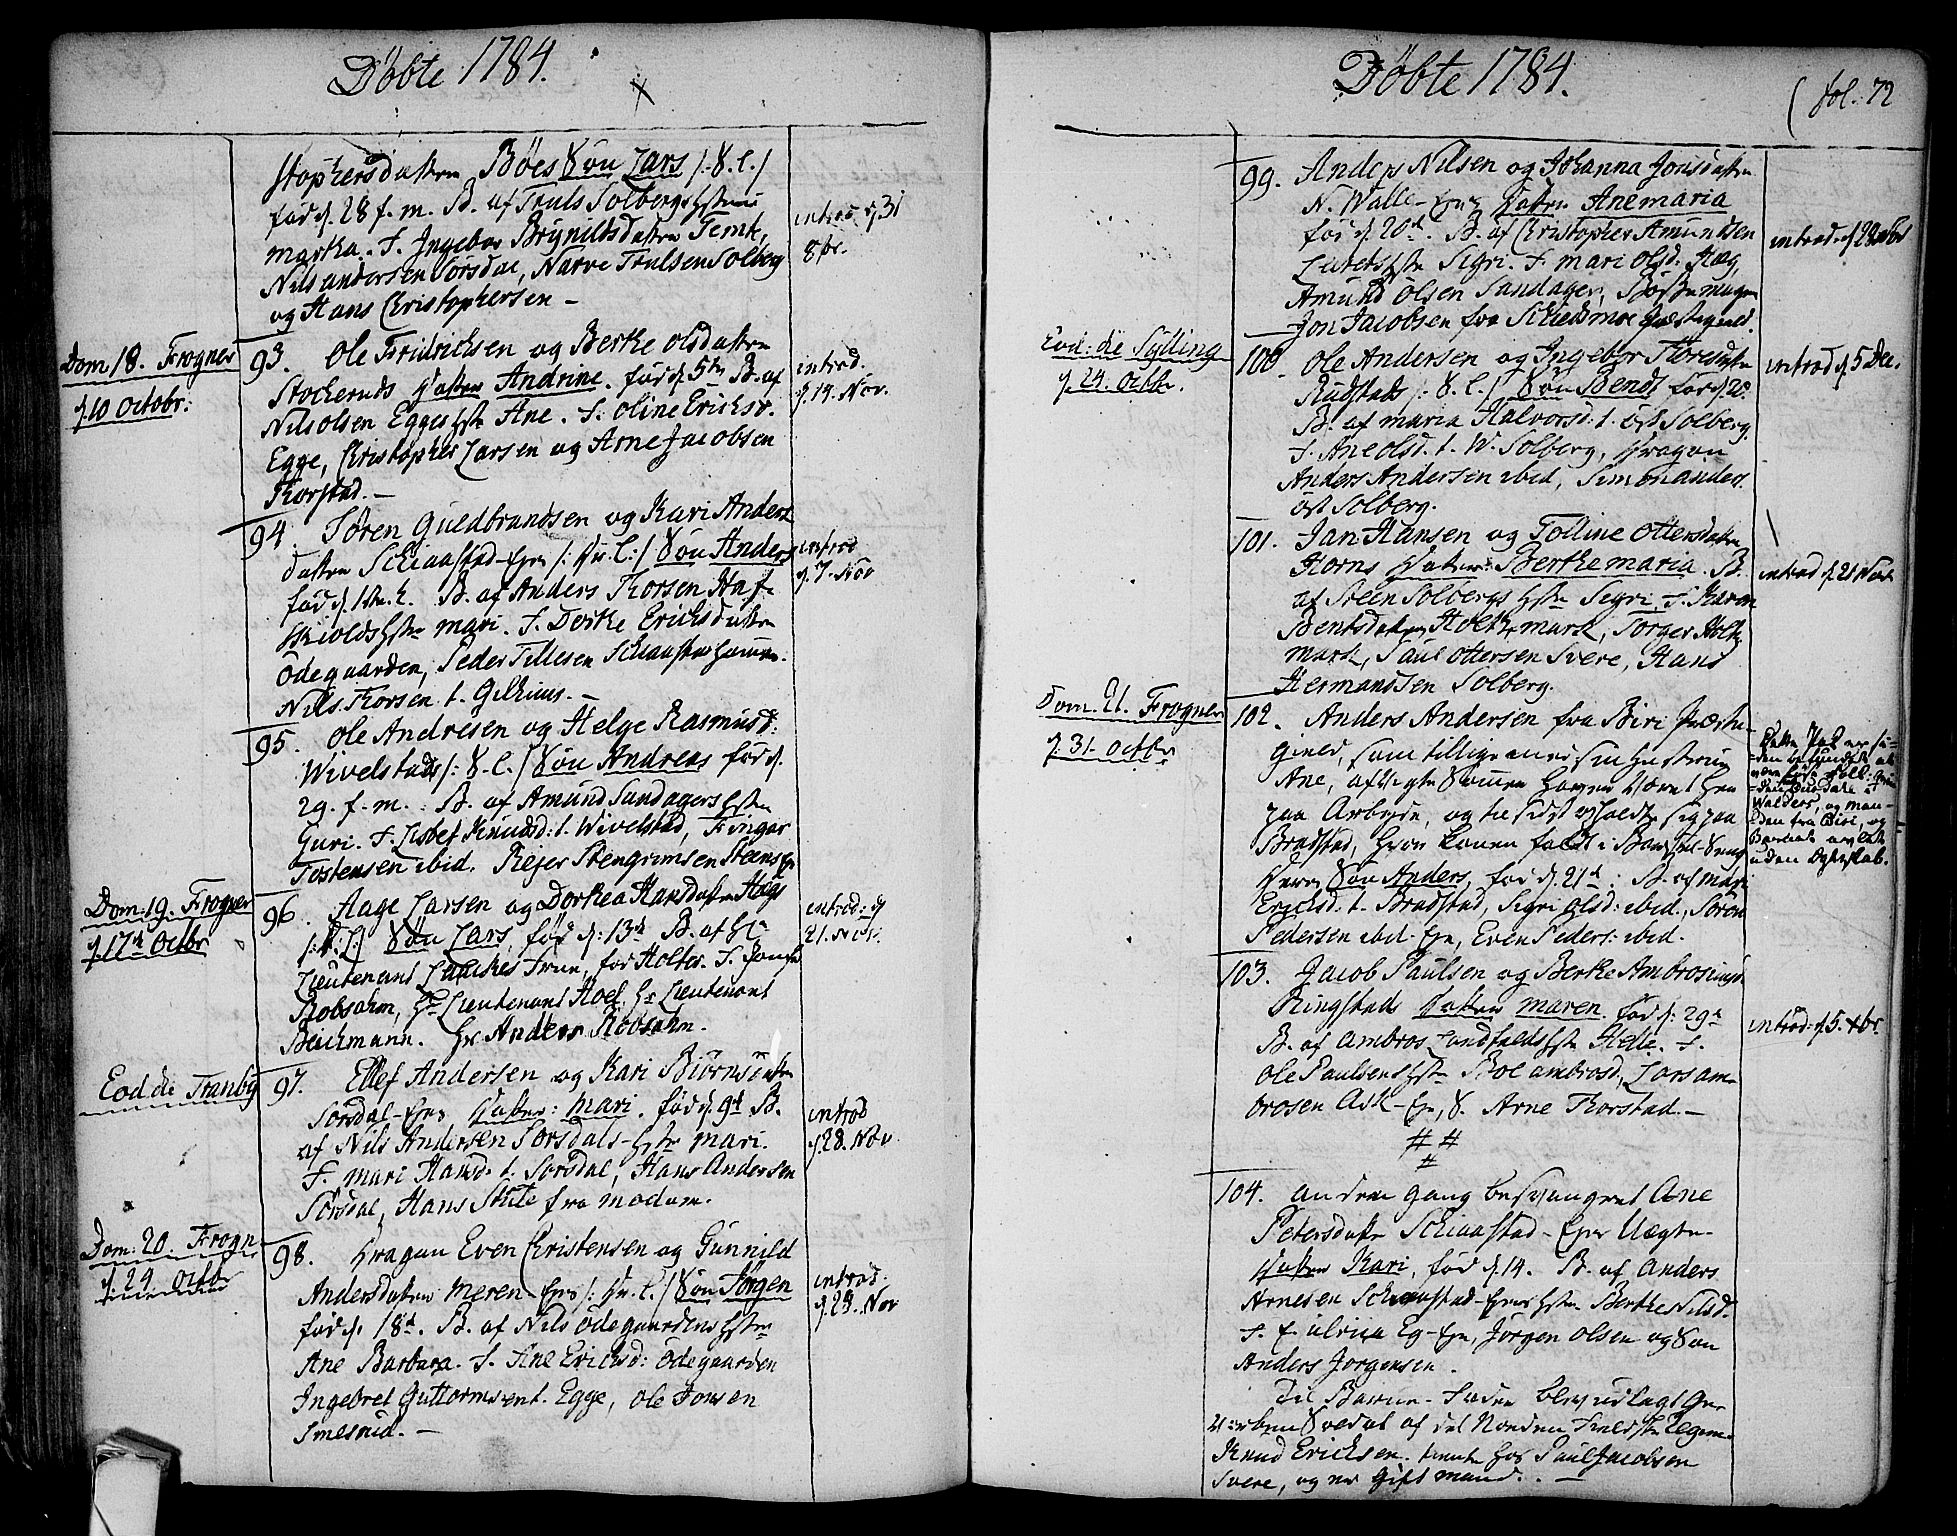 Döbte 1784.
stophersdatter Böes Sön Lars /: S.l. /
föd d. 28 f. m. B. af Truls Solbergs Hstru
Martha. F. Ingebor Brynildsdatter Temte,
Nils Andersen Sörsdal, Narve Trulsen Solberg
og Hans Christophersen –
introd. d. 31
8br.
Dom. 18. Frogner
d. 10 Octobr:
93. Ole Fridrichsen og Berthe Olsdatter
Stockerud datter Andrine. föd d. 5te B. af
Nils Olsen Egges Hstr Ane. F. Oline Ericksd.
Egge, Christopher Larsen og Arne Jacobsen
Thorstad. –
introd.
d. 14. Nov.
94. Sören Guldbrandsen og Kari Anders
datter Schiaastad-Eyer /: :/ Sön Anders
föd d. 1ste h. B. af Anders Thorsen
Hstr Mari. F. Dorthe Ericksdatter
Odegaarden, Peder Tillesen Schiaastad
Nils Thorsen t. Gilhuus. –
introd
d. 7. Nov
95. Ole Andresen og Helge Rasmusd:
Wivelstads /: S.l. / Sön Andreas föd d.
29. f. m. B. af Amund Sandagers Hstr
Guri. F. Lisbet Knudsd: t. Wivelstad, Fingar
Tostensen ibid. Rejer Stengrimsen
Dom. 19. Frogner
d. 17de Octbr
96. Aage Larsen og Dorthea Hansdatter Hags
Sön Lars, föd d: 13de B. af Hr
Lieutenant Frue, for Holter. F. Jomfr
Robsahm, Hr Lieutenant Hoef, Hr Lieutenant
Bachmann. Hr Anders Robsahm.
introd: d
21. Nov.
Eod. die Tranby
97. Ellef Andersen og Kari Biörnsdatter
Sörsdal-Eyes datter: Mari. föd d. 9de B.
af Nils Andersen Sörsdals-Hstr Mari.
F. Mari Hansd: t. Sörsdal, Hans Andersen
Sörsdal, Hans fra Modum.
introd
d. 28. Nov
Dom: 20. Frogn.
d. 24. Octbr
98. Dragun Even Christensen og Gunnild
Andersdatter Meren-Eyes /: :/ Sön Jörgen
föd d. 18de. B. af Nils Odegaardens Hstr
Ane Barbara. F. Ane Ericksd: Odegaarden
Ingebret Guttormsen t. Egge, Ole Jonsen
Smesrud. –
introd.
d. 28. Nov
Döbte 1784.
( fol. 72
99. Anders Nilsen og Johanna Jonsdatter
N. Walle-Eyes datter Anemaria
föd d. 20de. B. af Christopher Amundsen
Hstr Sigri. F. Mari Olsd: Hæg,
Amund Olsen Sandager,
Jon Jacobsen fra Schiedsmoe Præstegield.
introd. d. 29
Eod: die Sylling
d. 24. Octbr.
100. Ole Andersen og Ingebor Toresdatter
Rudstads /: S.l. / Sön Bendt föd d. 20.
B. af Maria Halvorsd: t. öst Solberg.
F. Ane Olsd. t. W. Solberg, Dragun
Anders Andersen ibid, Simon Anders.
öst Solberg.
introd d. 5 Dec.
101. Jan Hansen og Tolline Ottersdatter
Horns datter: Berthemaria. B.
af Steen Solbergs Hstr Sigri. F. Karen
Bentsdatter Holtsmark, Torger Holts-
mark, Paul Ottersen Svere, Hans
Hermandsen Solberg.
introd d. 21 Nov
Dom. 21. Frogner
d. 31. Octbr
102. Anders Andersen fra Biri Præste-
gield, som tillige med sin Hustrue
Ane, afvigte Sommer haver været her
paa Arbejde, og til sidst opholdt sig paa
Bradstad, hvor konen faldt i Barsel-Seng
deres Sön Anders, föd d. 21de: B. af Mari
Ericksd. t. Bradstad, Sigri Olsd: ibid., Sören
Pedersen ibid-Eye, Even Peders: ibid.
Dette Pak er si-
den befundet at
være löse Folk:
Walders, og man-
den fra Biri, og
Barnet avlet
uden Egteskab.
103. Jacob Paulsen og Berthe Ambrosiusd
Ringstads datter Maren. föd d: 29de
B. af Ambros Landfalds Hstr Helle. F.
Ole Paulsens Hstr Ambrosd, Lars Am-
brosen Ask-Eye, S. Arne Thorstad. –
introd: d. 5. xbr.
# #
#
104. Anden gang besvangret Ane
Petersdatter Schiaastad-Eyes Uægte
datter Kari, föd d. 14. B. af Anders
Arnesen Schiaastad-Eyes Hstr Berthe Nilsd.
F. Ulrica Eg-Eye, Jörgen Olsen og Sön
Anders Jorgensen.
Til Barne-Fader blev udlagt Ge-
worben Soldat af det Norden Fieldske Regim.
Knud Ericksen. tiente hos Paul Jacobsen
Svere, og er Gift mand. –